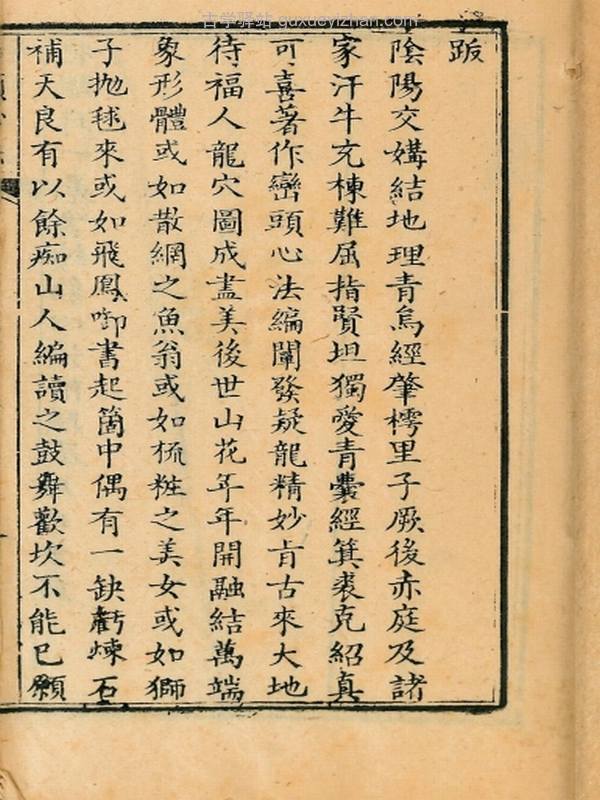 古学驿站 guxueyizhan.com
跋
陰陽交媾結地理青烏經肇樗里子厥後赤庭及諸
家汗牛充棟難屈指賢坦獨愛青囊經箕裘克紹真
可喜著作巒頭心法編闡發疑龍精妙肯古來大地
待福人龍穴圖成盡美後世山花年年開融結萬端
象形體或如散網之魚翁或如梳粧之美女或如獅
子抛毬來或如飛鳳啣書起箇中偶有一缺虧煉石
補天良有以餘痴山人編讀之鼓舞歡坎不能已願